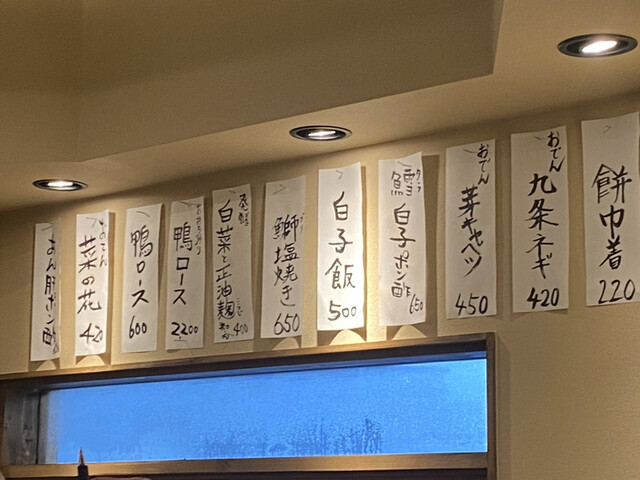 餅巾着
220
おでん
九条ネギ
420
おでん
芽キャベツ
450
鱈白子ポン酢
650
白子飯
500
鰤塩焼き
650
白菜と正油麹
鴨ロース
2200
鴨ロース
600
おでん
菜の花
420
あん肝ポン酢